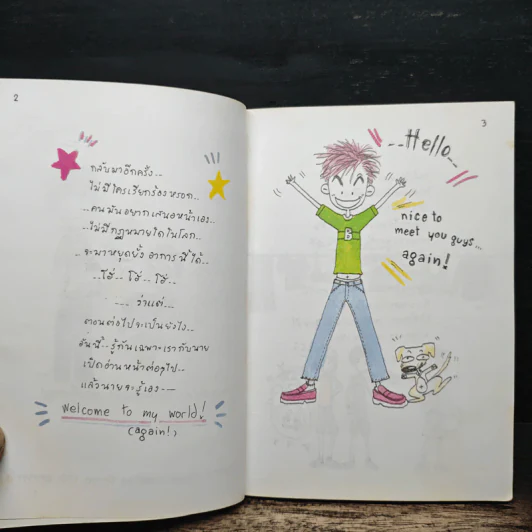 2
กลับมาอีกครั้ง...
ไม่มีใครเรียกร้องหรอก..
..คนมันอยากเสนอหน้าเอง..
..ไม่มีกฎหมายใดในโลก..
..จะมาหยุดยั้ง อาการนี้ได้..
..โฮ่.. โฮ่.. โฮ่..
.... ว่าแต่...
ตอนต่อไปจะเป็นยังไง..
อันนี้.. รู้กันเฉพาะเรากับนาย
เปิดอ่านหน้าต่อๆไป..
แล้วนายจะรู้เอง---
Welcome to my world!
(again!)
3
...Hello...
nice to
meet you guys...
again!
B